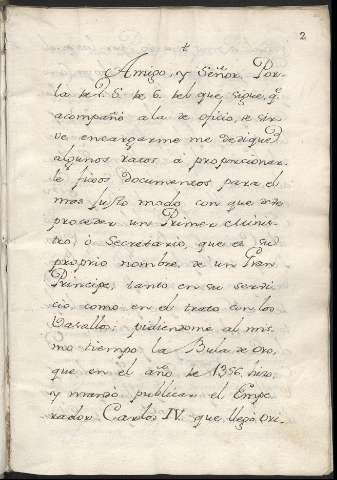 2
Amigo, y Señor. Por
la de V. S. de 6. del que sigue, q.e
acompañó a la de oficio, se sir-
ve encargarme me dedique
algunos ratos à proporcionar-
le fixos documentos para el
mas justo modo con que debe
proceder un Primer Minis-
tro, ò Secretario, que es su
proprio nombre, de un Gran
Principe, tanto en su servi-
cio, como en el trato con los
Vasallos; pidiendome al mis-
mo tiempo la Bula de Oro,
que en el año de 1356, hizo,
y mandó publicar el Empe-
rador Carlos IV. que llegó Ori-